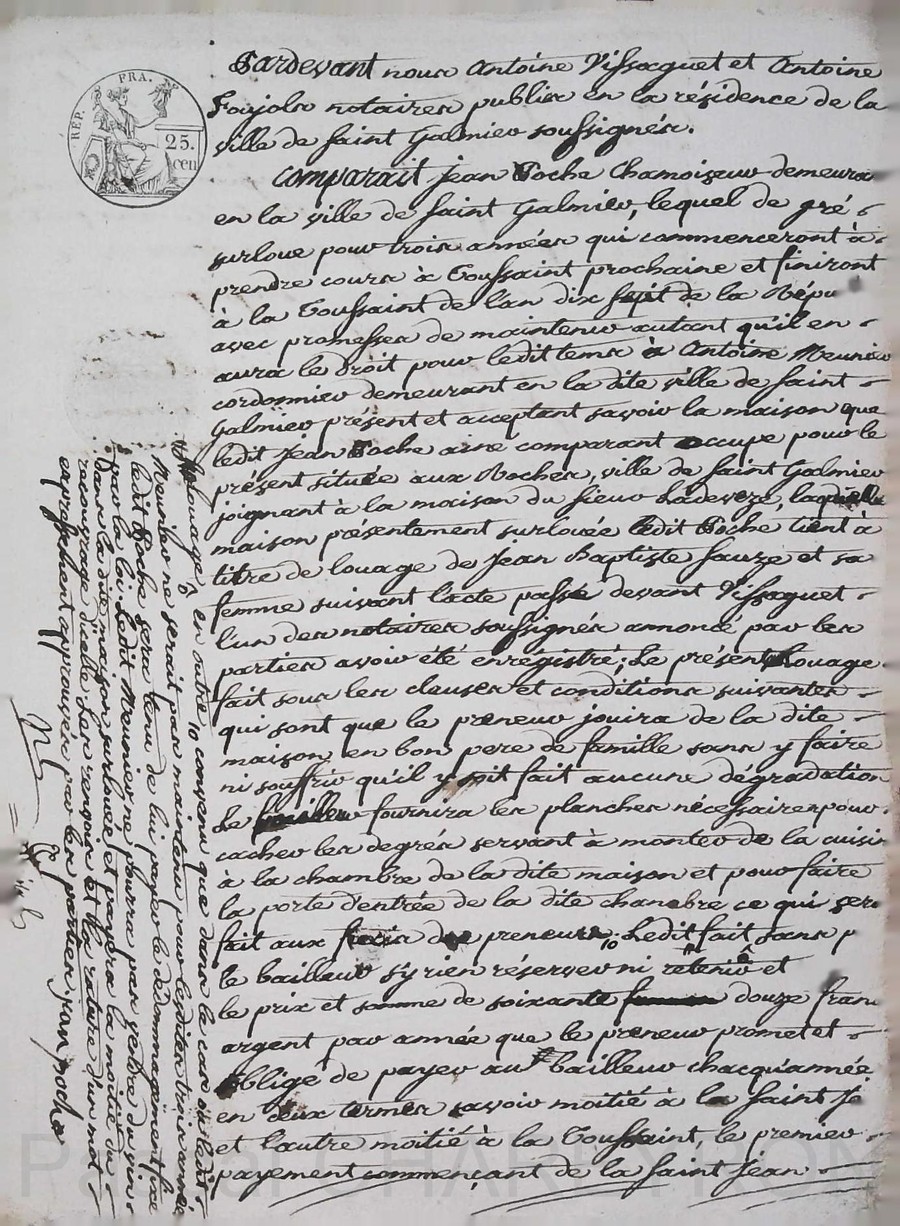 RÉP. FRA.
25.
cen
Pardevant nous Antoine Vissaguet et Antoine
Foujols notaires publics en la résidence de la
ville de Saint Galmier soussignés.
Comparait jean Poche Chamoiseur demeura
en la ville de Saint Galmier, lequel de gré
surloue pour trois années qui commenceront à
prendre cours à Toussaint prochaine et finiront
à la Toussaint de l'an dix sept de la Répu
avec promesses de maintenir autant qu'il en
aura le droit pour ledit tems à Antoine Meunier
cordonnier demeurant en la dite ville de Saint
Galmier présent et acceptant savoir la maison que
ledit Jean Poche aine comparant occupe pour le
présent située aux Roches, ville de Saint Galmier
joignant à la maison du sieur Ladeveze, laquelle
maison présentement surlouée ledit Poche tient à
titre de louage de Jean Baptiste Sauze et sa
femme suivant l'acte passé devant Vissaguet
l'un des notaires soussignés annoncé par les
parties avoir été enrégistré; Le présent louage
fait sous les clauses et conditions suivantes
qui sont que le preneur jouira de la dite
maison en bon pere de famille sans y faire
ni souffrir qu'il y soit fait aucune dégradation
Le fournira les planches nécessaires pour
cacher les degrés servant à monter de la cuisin
à la chambre de la dite maison et pour faire
la porte d'entrée de la dite chambre ce qui sera
fait aux frais du preneur. Ledit fait sans p
le bailleur s'y rien réserver ni retenir et
le prix et somme de soixante douze franc
argent par année que le preneur promet et
oblige de payer au bailleur chacqu'année
en deux termes savoir moitié à la Saint Je
et l'autre moitié à la Toussaint, le premier
payement commençant de la Saint Jean
louage, en outre convenu que dans le cas où ledit
Meunier ne serait pas maintenu pour lesdites trois années
ledit Poche sera tenu de lui payer le dédommagement fixé
par la loi. Ledit Meunier ne pourra pas vendre du vin
dans la dite maison surlouée et payera la moitié du
recouvrage d'icelle. Les renvois et la rature d'un mot
expressément approuvés par les parties. jean poche